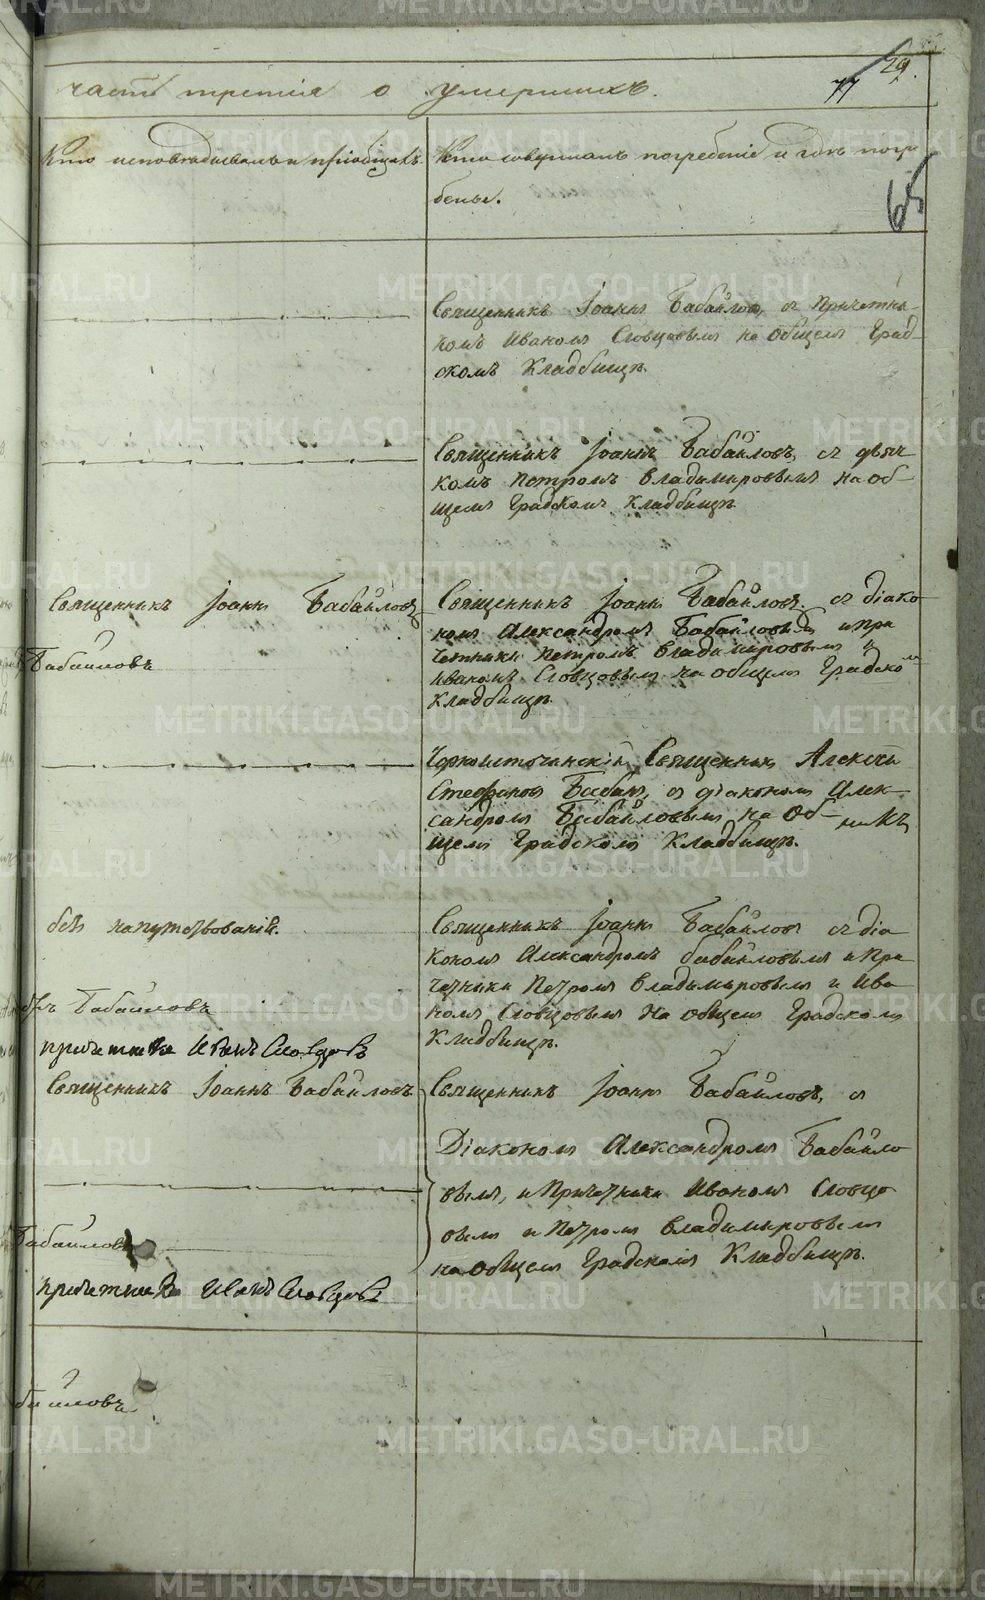 29.
77
часть третія о умершихъ.
65
Кто исповѣдывалъ и пріобщалъ.
Кто совершалъ погребеніе и гдѣ погре
бены.
Священникъ Іоаннъ Бабайловъ, съ причетни-
комъ Иваномъ Словцовымъ на общемъ Град-
скомъ Кладбищѣ.
Священникъ Іоаннъ Бабайловъ, съ дьяч-
комъ Петромъ Владимировымъ на об-
щемъ Градскомъ Кладбищѣ.
Священникъ Іоаннъ Бабайловъ
Бабайловъ
Священникъ Іоаннъ Бабайловъ съ діако
номъ Александромъ Бабайловымъ и при
четники Петромъ Владимировымъ и
Иваномъ Словцовымъ на общемъ Градском
Кладбищѣ.
Черноисточинскій Священникъ Алексѣй
Стефановъ Бабинъ, съ діакономъ Алек-
сандромъ Бабайловымъ на Об-
щемъ Градскомъ Кладбищѣ.
безъ напутствованія.
Бабайловъ
причетникъ Иванъ Словцовъ
Священникъ Іоаннъ Бабайловъ съ діа
кономъ Александромъ Бабайловымъ и при
четники Петромъ Владимировымъ и Ива
номъ Словцовымъ на общемъ Градскомъ
Кладбищѣ.
Священникъ Іоаннъ Бабайловъ
Бабайловъ
причетникъ Иванъ Словцовъ
Священникъ Іоаннъ Бабайловъ, съ
Діакономъ Александромъ Бабайло
вымъ, и Причетники Иваномъ Словцо
вымъ и Петромъ Владимировымъ
на общемъ Градскомъ Кладбищѣ.
байловъ
METRIKI.GASO-URAL.RU